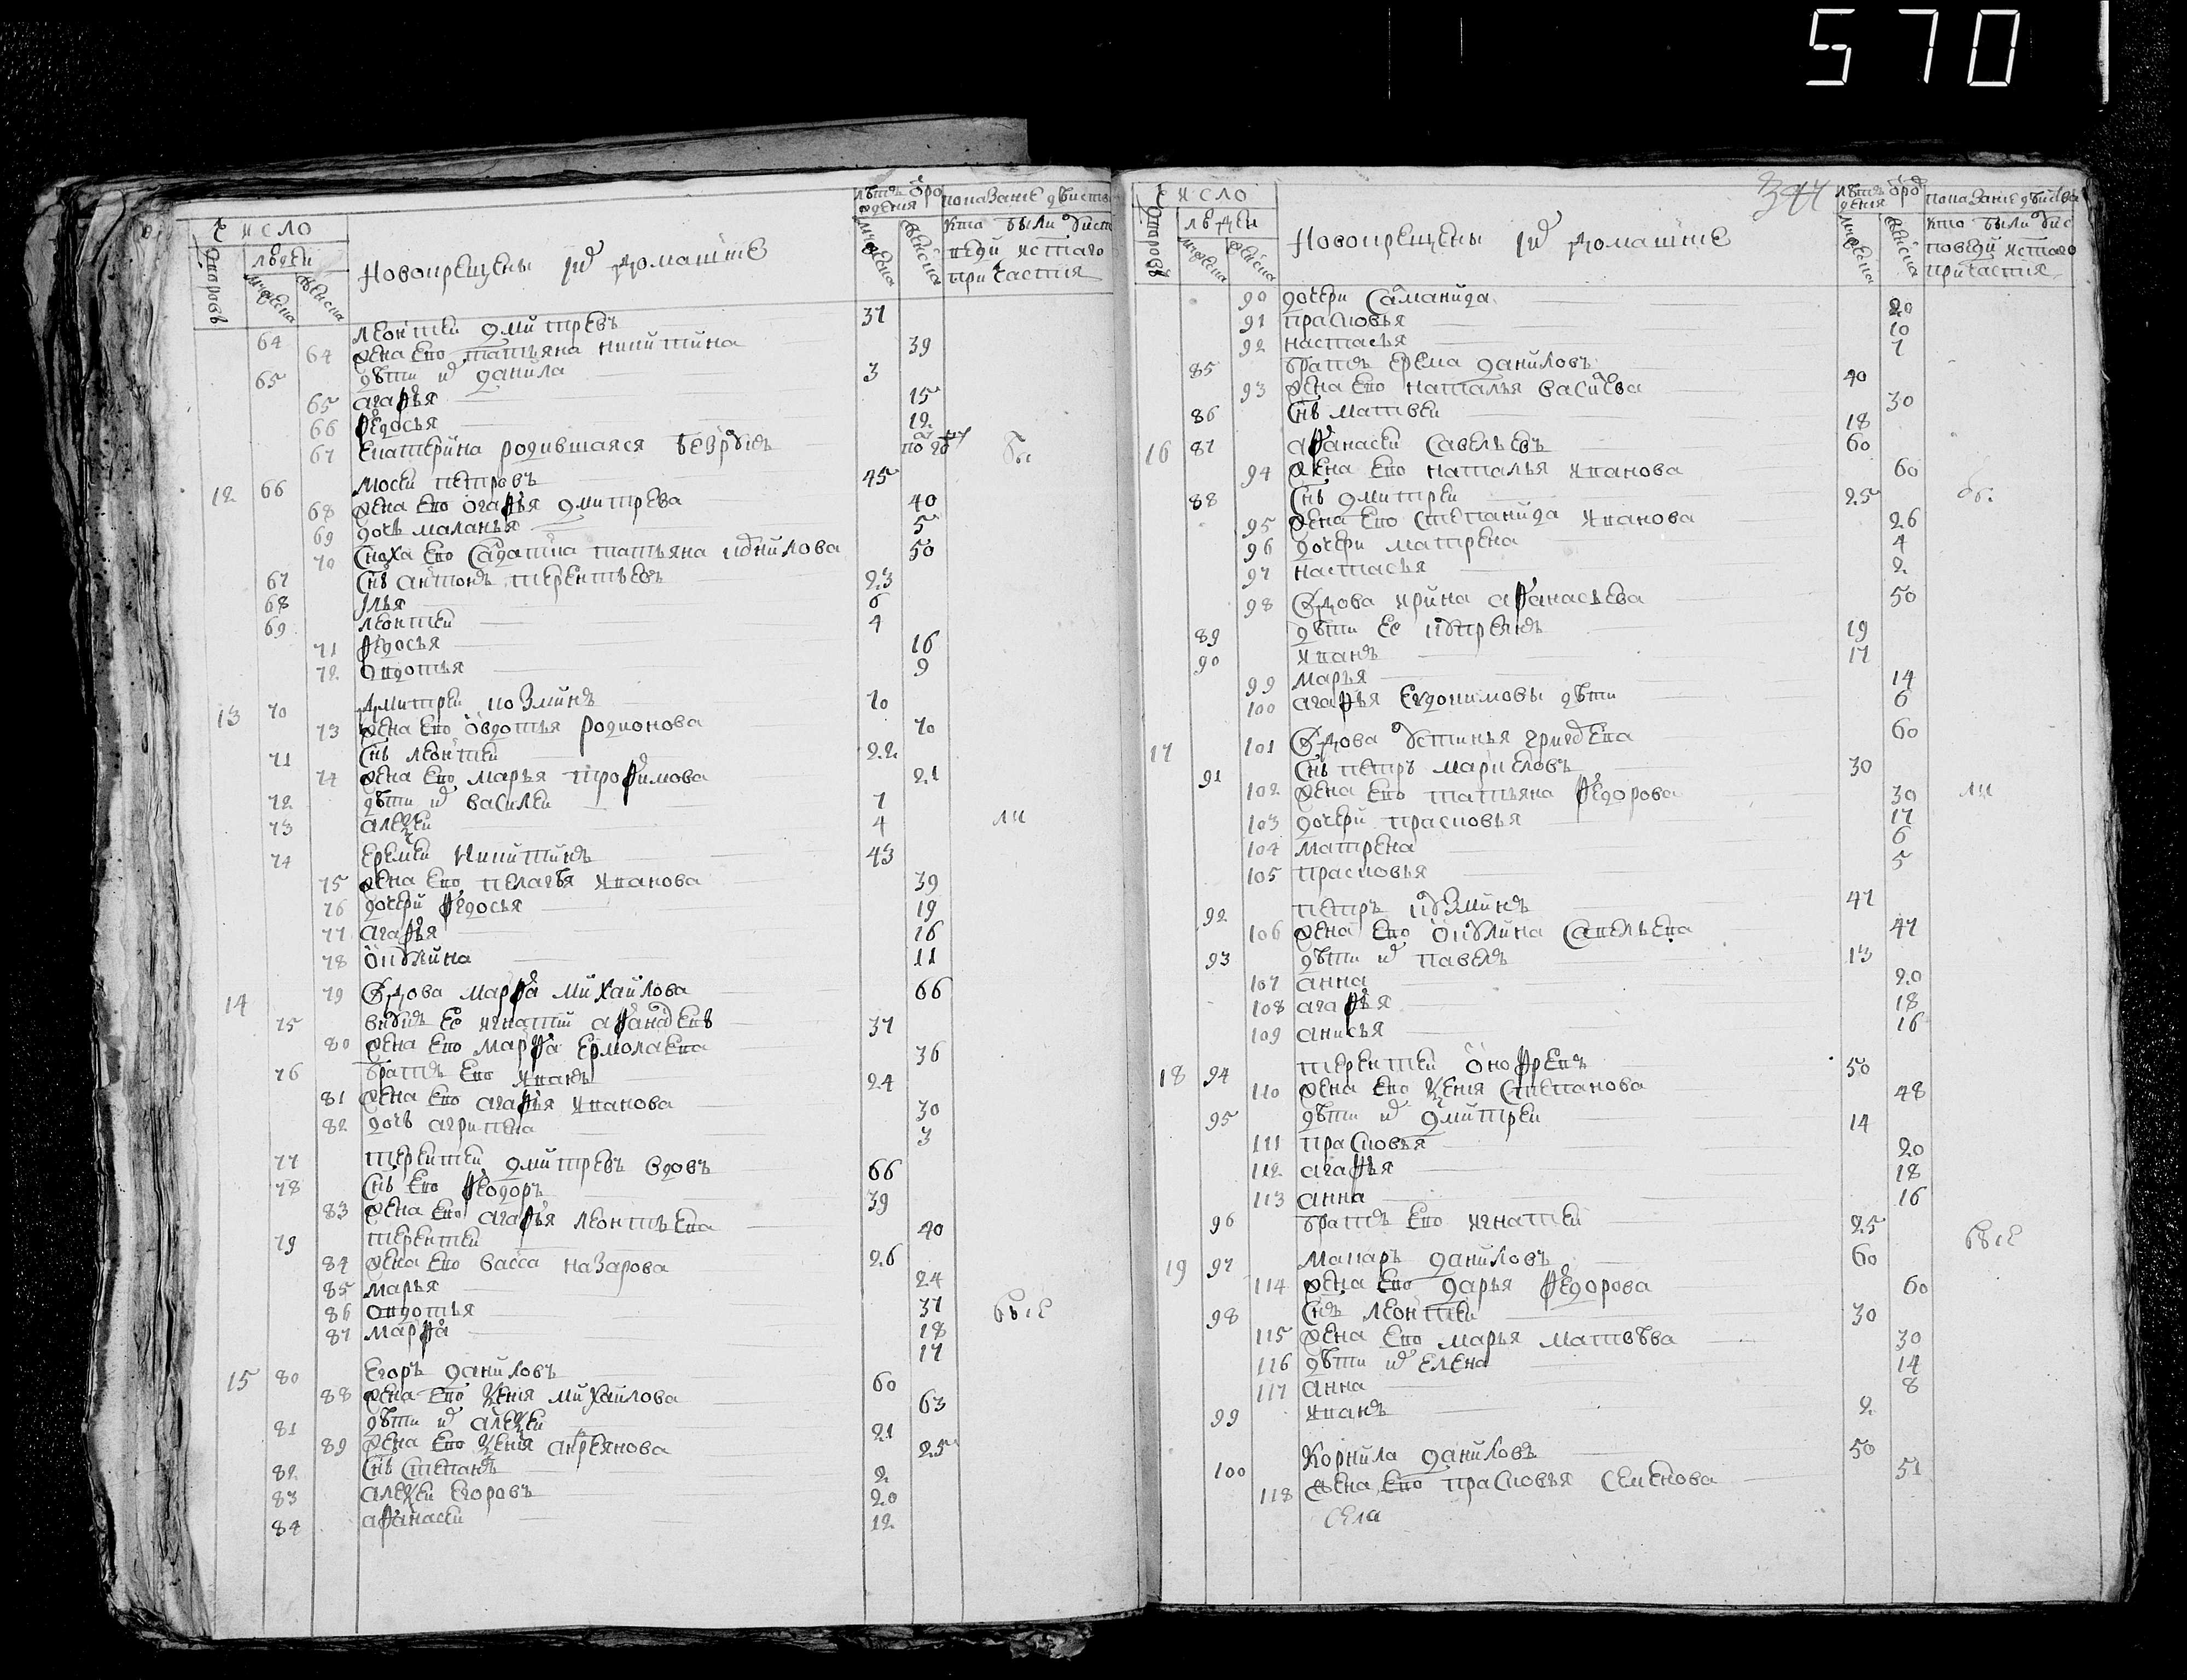 570
число
дворовъ
людеи
мужеска
женска
Новокрещены ихъ домашние
лѣтъ от рождения
мужеска
женска
показание действа
кто были у исповеди и стаго
причастия
64 леонтеи дмитревъ 37
64 жена ево татьяна никитина 39
65 дѣти их данила 3
65 агафья 15
66 федосья 12
67 екатерина родившаяся
12 66 мосеи петровъ 45
68 жена ево огафья дмитрева 40
69 дочь маланья 5
70 сноха ево салдатка татьяна 50
67 снъ антонъ терентьевъ 23
68 илья 6
69 леонтеи 4
71 федосья 16
72 овдотья 9
13 70 дмитреи козминъ 70
73 жена ево овдотья родионова 70
71 снъ леонтеи 22
74 жена ево марья трофимова 21
72 дѣти их василеи 7
73 алеѯеи 4
74 еремеи никитинъ 43
75 жена ево пелагья иванова 39
76 дочери федосья 19
77 агафья 16
78 окулина 11
14 79 вдова марфа михаилова 66
75 внукъ ее игнатии афанасьевъ 37
80 жена ево марфа ермолаева 36
76 братъ ево иванъ 24
81 жена ево агафья иванова 30
82 дочь агрипена 3
77 терентеи дмитревъ вдовъ 66
78 снъ ево феодоръ 39
83 жена ево агафья леонтьева 40
79 терентеи 26
84 жена ево васса назарова 24
85 марья 37
86 овдотья 18
87 марфа 17
15 80 егоръ даниловъ 60
88 жена ево ѯения михаилова 63
81 дѣти их алеѯеи 21
89 жена ево ѯения андреянова 25
82 снъ степанъ 2
83 алеѯеи егоровъ 20
84 афанасеи 12
344
число
дворовъ
людеи
мужеска
женска
Новокрещены ихъ домашние
лѣтъ от рождения
мужеска
женска
показание действа
кто были у ис
поведи и стаго
причастия
90 дочери саманида 20
91 прасковья 10
92 настасья 7
85 братъ ерема даниловъ 40
93 жена ево наталья василева 30
86 снъ матвеи 18
16 87 афанасеи савельевъ 60
94 жена ево наталья иванова 60
88 снъ дмитреи 25
95 жена ево степанида иванова 26
96 дочери матрена 4
97 настасья 2
98 вдова ирина афанасьева 50
89 дѣти ее куприянъ 19
90 иванъ 17
99 марья 14
100 агафья евдокимовы дѣти 6
17 101 вдова устинья григорьева 60
91 снъ петръ маркеловъ 30
102 жена ево татьяна федорова 30
103 дочери прасковья 17
104 матрена 6
105 прасковья 5
92 петръ кузминъ 47
106 жена ево окулина савельева 47
93 дѣти их павелъ 13
107 анна 20
108 агафья 18
109 анисья 16
18 94 терентеи онофревъ 50
110 жена ево ѯения степанова 48
95 дѣти их дмитреи 14
111 прасковья 20
112 агафья 18
113 анна 16
96 братъ ево игнатеи 25
19 97 макаръ даниловъ 60
114 жена ево дарья федорова 60
98 снъ леонтеи 30
115 жена ево марья матвѣва 30
116 дѣти их елена 14
117 анна 8
99 иванъ 2
100 корнила даниловъ 50
118 жена ево прасковья семенова 51
села